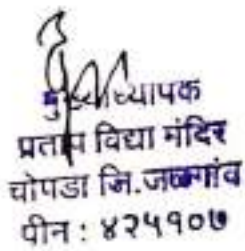 मुख्याध्यापक
प्रताप विद्या मंदिर
चोपडा जि.जळगांव
पीन : ४२५१०७